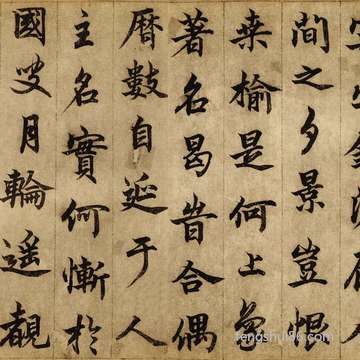 間之夕景豈恨
桑榆是何上
著名曷昔合偶
曆數自延于人
主名實何慚於
國叟月輪遥覩
fengshui86.com